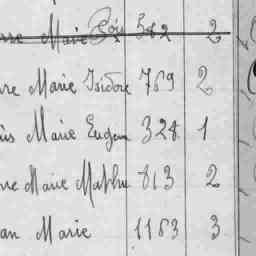 Marie 582 2
Marie Isidore 769 2
Marie Eugen 328 1
Marie Mathu 813 2
an Marie 1163 3